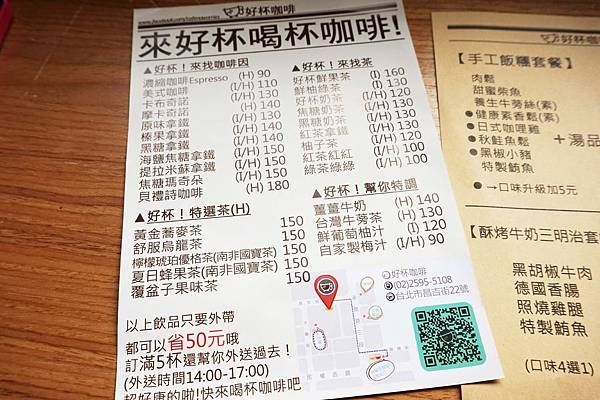 好杯咖啡
來好杯喝杯咖啡!
▲好杯！來找咖啡因
濃縮咖啡Espresso (H) 90
美式咖啡 (I/H) 110
卡布奇諾 (I/H) 130
摩卡奇諾 (H) 140
原味拿鐵 (I/H) 130
榛果拿鐵 (I/H) 140
黑糖拿鐵 (I/H) 140
海鹽焦糖拿鐵 (I/H) 150
提拉米蘇拿鐵 (I/H) 150
焦糖瑪奇朵 (I/H) 150
貝禮詩咖啡 (H) 180
▲好杯！來找茶
好杯鮮果茶 (I) 160
鮮柚綠茶 (I) 130
好杯奶茶 (I/H) 120
焦糖奶茶 (I/H) 130
黑糖奶茶 (I/H) 130
紅茶拿鐵 (I/H) 120
柚子茶 (I/H) 120
紅茶紅紅 (I/H) 100
綠茶綠綠 (I/H) 100
▲好杯！特選茶(H)
黃金蕎麥茶 150
舒服烏龍茶 150
檸檬琥珀優格茶(南非國寶茶) 150
夏日蜂果茶(南非國寶茶) 150
覆盆子果味茶 150
▲好杯！幫你特調
薑薑牛奶 (H) 140
台灣牛蒡茶 (H) 130
鮮葡萄柚汁 (I) 120
自家製梅汁 (I/H) 90
好杯咖啡
(02)2595-5108
台北市昌吉街22號
以上飲品只要外帶
都可以省50元哦
訂滿5杯還幫你外送過去！
(外送時間14:00-17:00)
超好康的啦!快來喝杯咖啡吧
好杯咖
【手工飯糰套餐】
肉鬆
甜蜜柴魚
養生牛蒡絲(素)
●健康素香鬆(素)
●日式咖哩雞
●秋鮭魚鬆
●黑椒小豬
特製鮪魚
＋湯品
●→口味升級加5元
【酥烤牛奶三明治套
黑胡椒牛肉
德國香腸
照燒雞腿
特製鮪魚
(口味4選1)